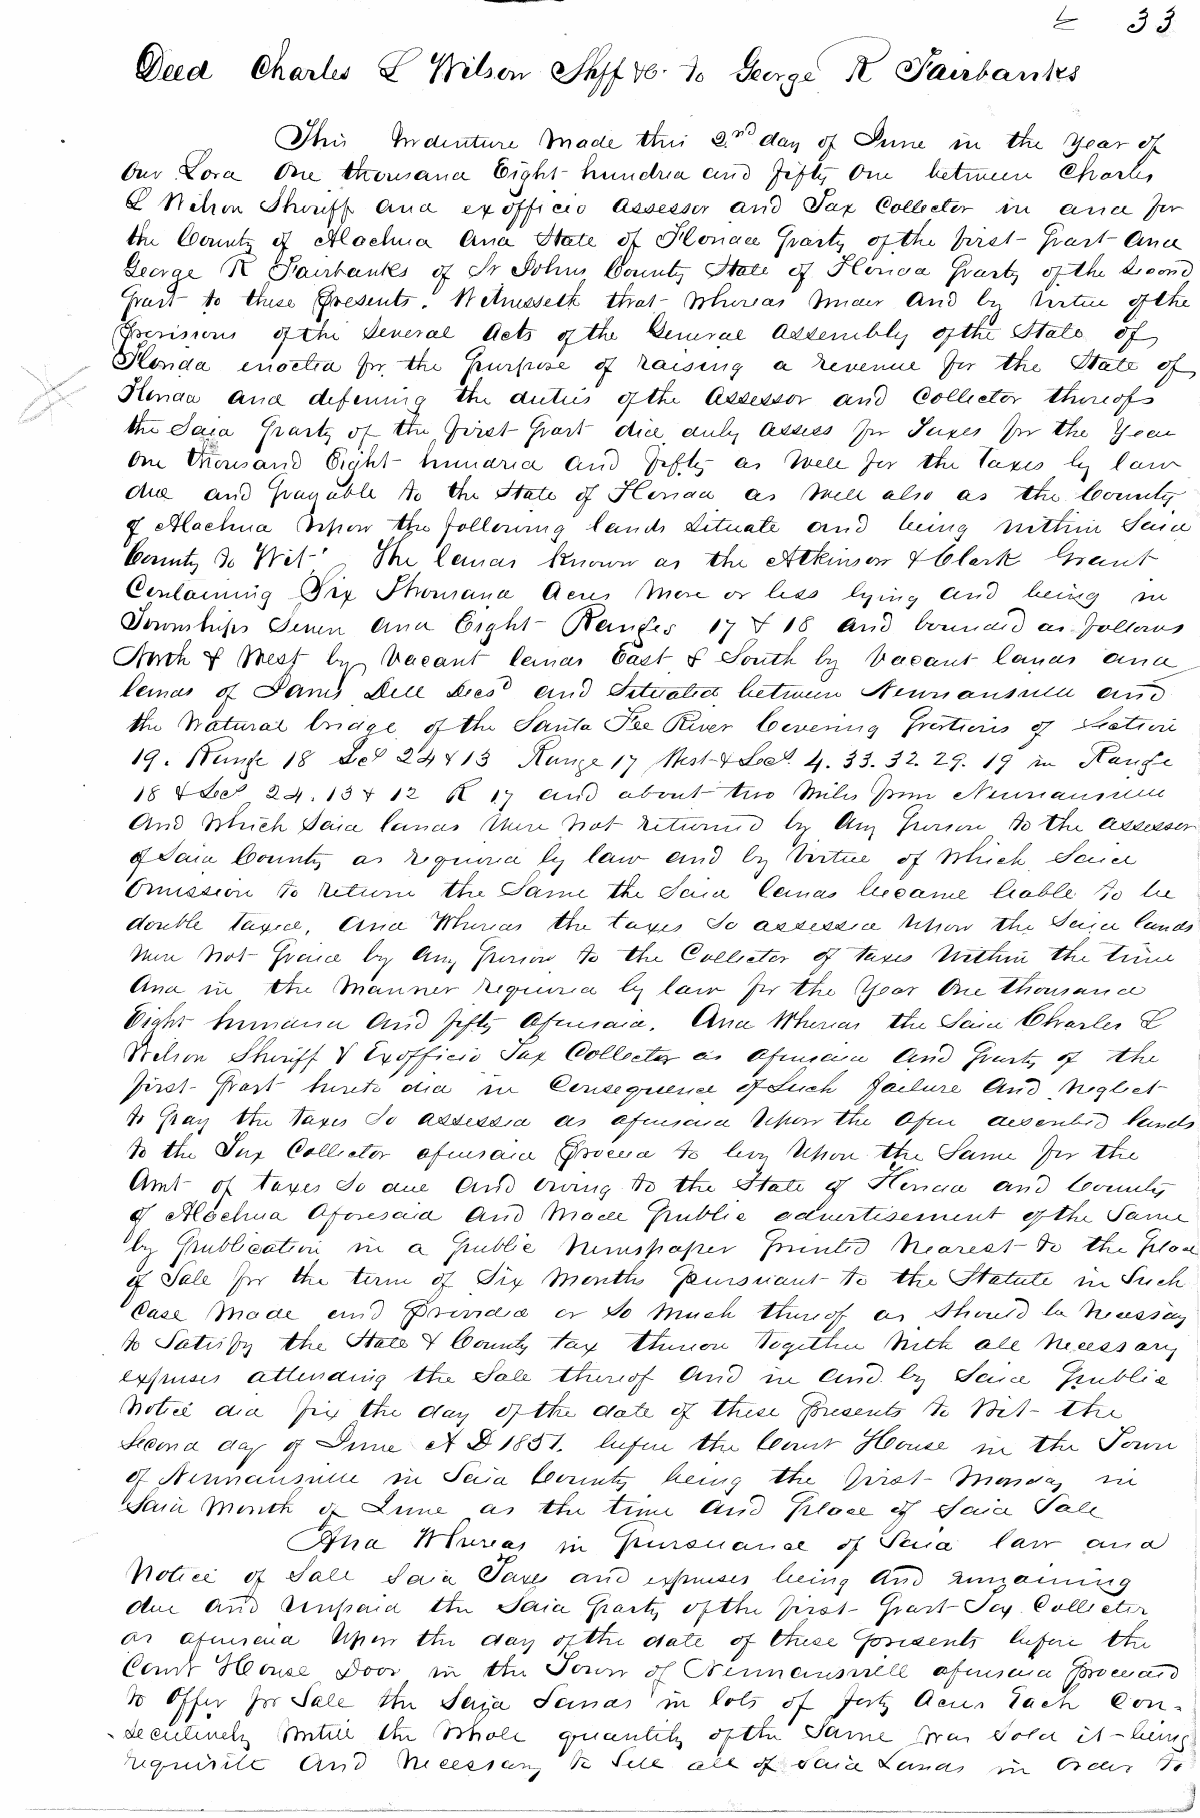 33
Deed Charles L Wilson Shff &c. to George R Fairbanks
This Indenture Made this 2nd day of June in the Year of
Our Lord One thousand Eight hundred and fifty One between Charles
L Wilson Sheriff and exofficio Assessor and Tax Collector in and for
the County of Alachua And State of Florida Party of the first Part And
George R Fairbanks of St Johns County State of Florida Party of the Second
Part to these Presents. Witnesseth that Whereas Under And by Virtue of the
Provisions of the Several Acts of the General Assembly of the State of
Florida enacted for the Purpose of raising a revenue for the State of
Florida and defining the duties of the Assessor and Collector thereof
the Said Party of the first Part did duly Assess for Taxes for the Year
One thousand Eight hundred And fifty as Well for the Taxes by law
due and Payable to the State of Florida as Well also as the County
of Alachua Upon the following lands Situate and being within Said
County To Wit: The lands Known as the Atkinson & Clark Grant
Containing Six Thousand Acres More or less lying and being in
Townships Seven And Eight Ranges 17 & 18 and bounded as follows
North & West by Vacant lands East & South by Vacant lands and
lands of James Dell Decd and Situated between Newnansville and
the Natural bridge of the Santa Fee River Covering Portions of Section
19. Range 18 Sec 24 & 13 Range 17 West & Secs. 4. 33. 32. 29. 19 in Range
18 & Secs 24. 13 & 12 R 17 and about two Miles from Newnansville
And Which Said lands Were Not returned by Any Person to the Assessor
of Said County as required by law and by Virtue of Which Said
Omission to return the Same the Said lands became liable to be
double taxed, And Whereas the taxes So assessed Upon the Said lands
Were Not Paid by Any Person to the Collector of taxes Within the time
And in the Manner required by law for the Year One thousand
Eight hundred And fifty Aforesaid. And Whereas the Said Charles L
Wilson Sheriff & Exofficio Tax Collector as aforesaid And Party of the
first Part hereto did in Consequence of Such failure And Neglect
to Pay the taxes So assessed as aforesaid Upon the afore described lands
to the Tax Collector aforesaid Proceed to levy Upon the Same for the
Amt of taxes So due And Owing to the State of Florida and County
of Alachua Aforesaid And Made Public advertisement of the Same
by Publication in a Public Newspaper Printed Nearest to the Place
of Sale for the term of Six Months Pursuant to the Statute in Such
Case Made and Provided or So Much thereof as Should be Necessary
to Satisfy the State & County tax thereon together With all Necessary
expenses attending the Sale thereof And in And by Said Public
Notice did fix the day of the date of these Presents to Wit the
Second day of June A D 1851. before the Court House in the Town
of Newnansville in Said County being the first Monday in
Said Month of June as the time And Place of Said Sale
And Whereas in Pursuance of Said law and
Notice of Sale Said Taxes and expenses being And remaining
due And Unpaid the Said Party of the first Part Tax Collector
as aforesaid Upon the day of the date of these Presents before the
Court House Door in the Town of Newnansvill aforesaid Proceeded
to Offer for Sale the Said Lands in lots of forty Acres Each Con-
-secutively Untill the Whole quantity of the Same Was Sold it being
requisite And Necessary to Sell all of Said Lands in Order to